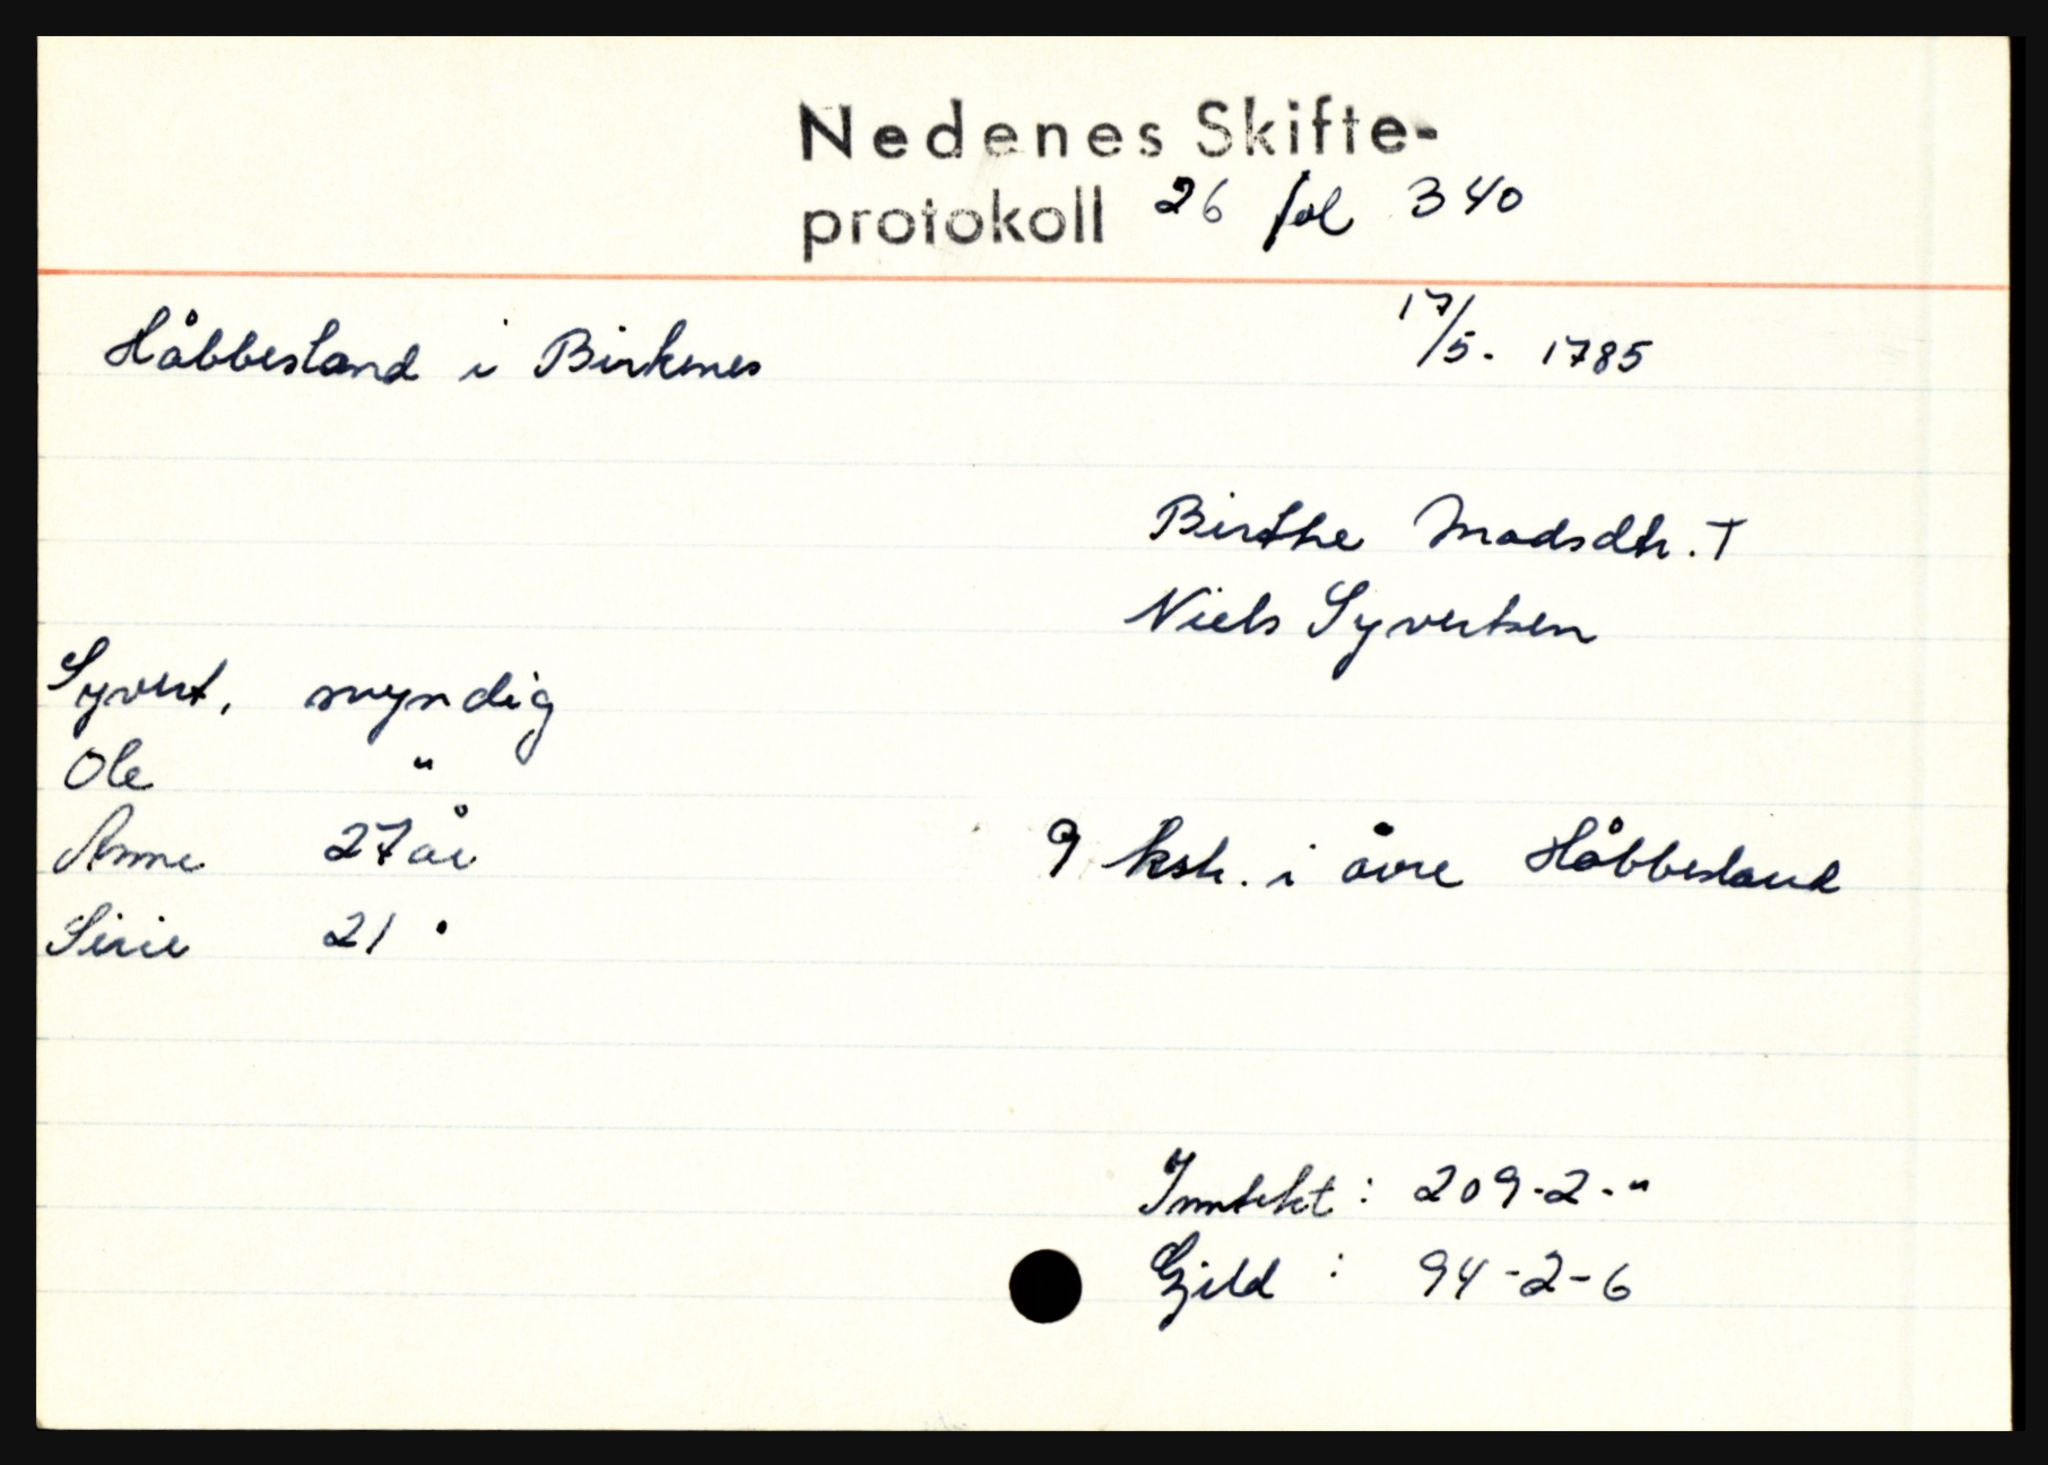 Nedenes Skifte-
protokoll 26 fol 340
Håbbesland i Birkenes 17/5. 1785
Birthe Madsdtr. †
Niels Syvertsen
Syvert, myndig
Ole "
Anne 27 år 9 ksk. i øvre Håbbesland
Sirie 21 "
Inntekt : 209-2-"
Gjeld : 94-2-6